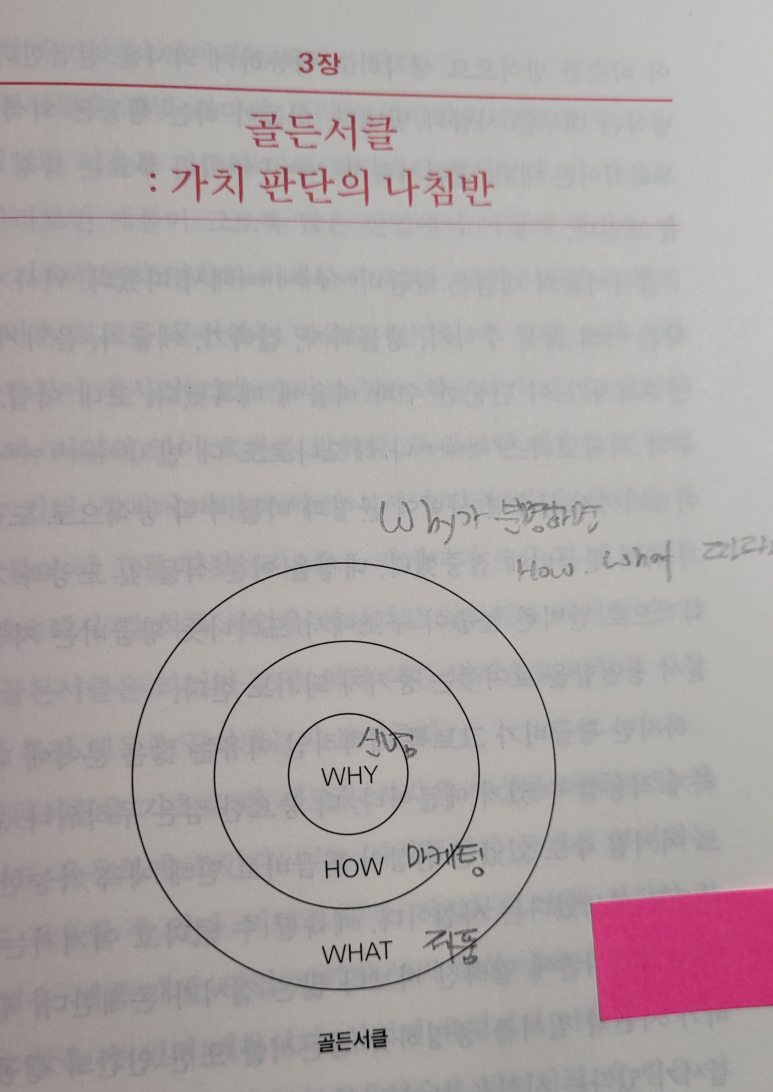 3장
골든서클
: 가치 판단의 나침반
Why가 분명하면
How. What
신념
WHY
HOW 마케팅
WHAT
골든서클